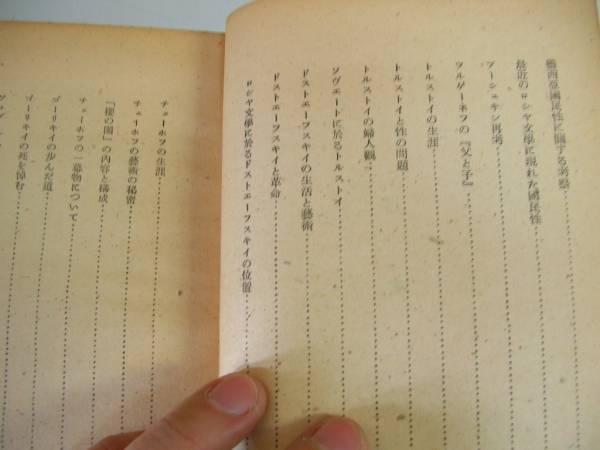 露西亞國民性に關する考察
最近のロシヤ文學に現れた國民性
プーシュキン再考
ツルゲーネフの『父と子』
トルストイの生涯
トルストイと性の問題
トルストイの婦人觀
ソヴエートに於るトルストイ
ドストエーフスキイの生活と藝術
ドストエーフスキイと革命
ロシヤ文學に於るドストエーフスキイの位置
チェーホフの生涯
チェーホフの藝術の秘密
『櫻の園』の內容と構成
チェーホフの一幕物について
ゴーリキイの歩んだ道
ゴーリキイの死を悼む